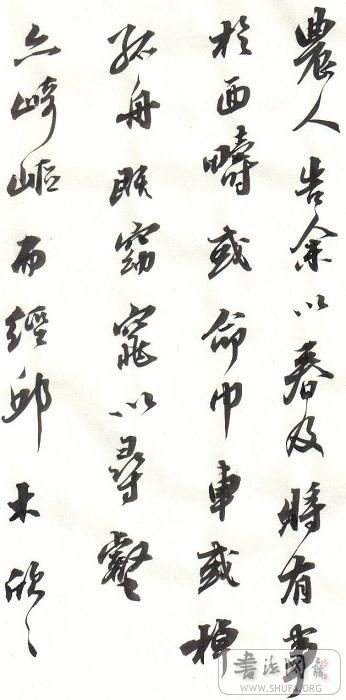 農人告余以春及將有事
於西疇或命巾車或棹
孤舟既窈窕以尋壑
亦崎嶇而經邱木欣〻
書法网
WWW.SHUFA.ORG